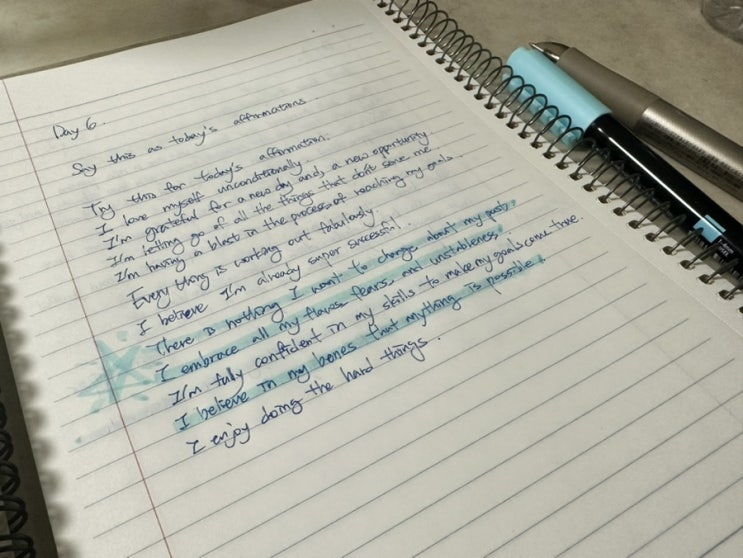 Day 6.
Say this as today's affirmations.
Try this for today's affirmation:
I love myself unconditionally.
I'm grateful for a new day and, a new opportunity.
I'm letting go of all the things that don't serve me.
I'm having a blast in the process of reaching my goals.
Everything is working out fabulously.
I believe I'm already super successful.
There is nothing I want to change about my past.
I embrace all my flaws fears and unstableness.
I'm fully confident in my skills to make my goals come true.
I believe in my bones that anything is possible.
I enjoy doing the hard things.